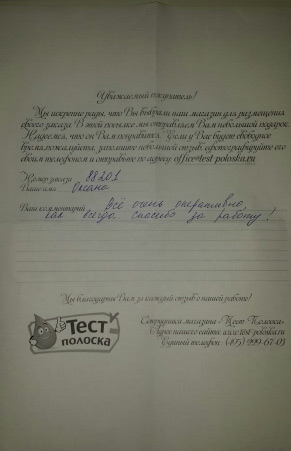 Уважаемый покупатель!
Мы искренне рады, что Вы выбрали наш магазин для размещения
своего заказа. В этой посылке мы отправляем Вам небольшой подарок.
Надеемся, что он Вам понравится. Если у Вас будет свободное
время, пожалуйста, заполните небольшой отзыв, сфотографируйте его
своим телефоном и отправьте по адресу: office@test-poloska.ru
Номер заказа 88201
Ваше имя Оксана
Ваш комментарий Всё очень оперативно,
как всегда. Спасибо за работу!
Мы благодарны Вам за каждый отзыв о нашей работе!
ТЕСТ
ПОЛОСКА
Сотрудники магазина "Тест Полоска"
Адрес нашего сайта: www.test-poloska.ru
Единый телефон: (495) 999-67-03